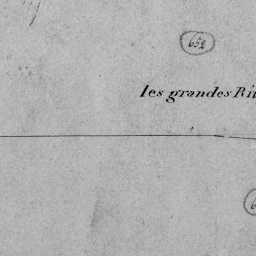 652
les grandes Ri